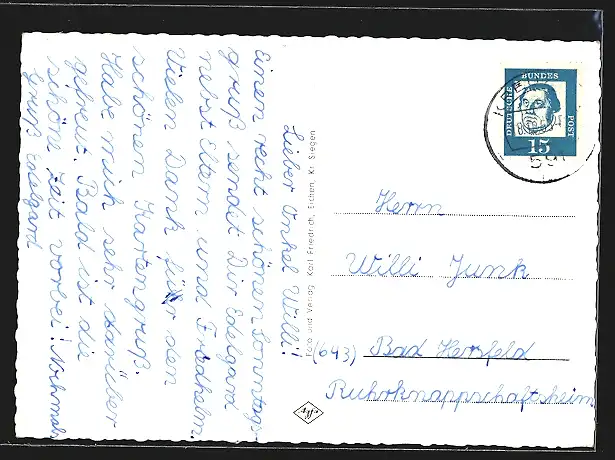 Lieber Onkel Willi!
Einen recht schönen Sonntags-
gruß sendet Dir Edelgard
nebst Eltern und Friedhelm.
Vielen Dank für den
schönen Kartengruß.
Habe mich sehr darüber
gefreut. Bald ist die
schöne Zeit vorbei! Nochmals
Gruß Edelgard
Foto und Verlag Karl Friedrich, Eichen, Kr. Siegen
DEUTSCHE BUNDESPOST
15
591
Herrn
Willi Junk
(643) Bad Hersfeld
Ruhrknappschaftsheim